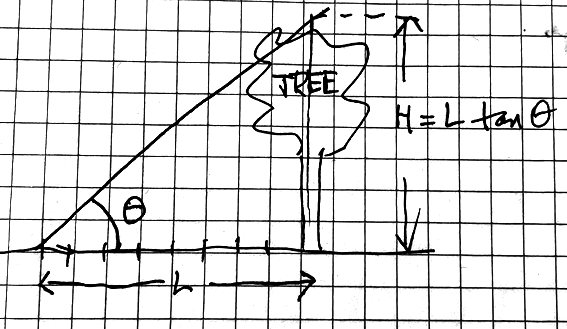 TREE
H = L tan θ
θ
L